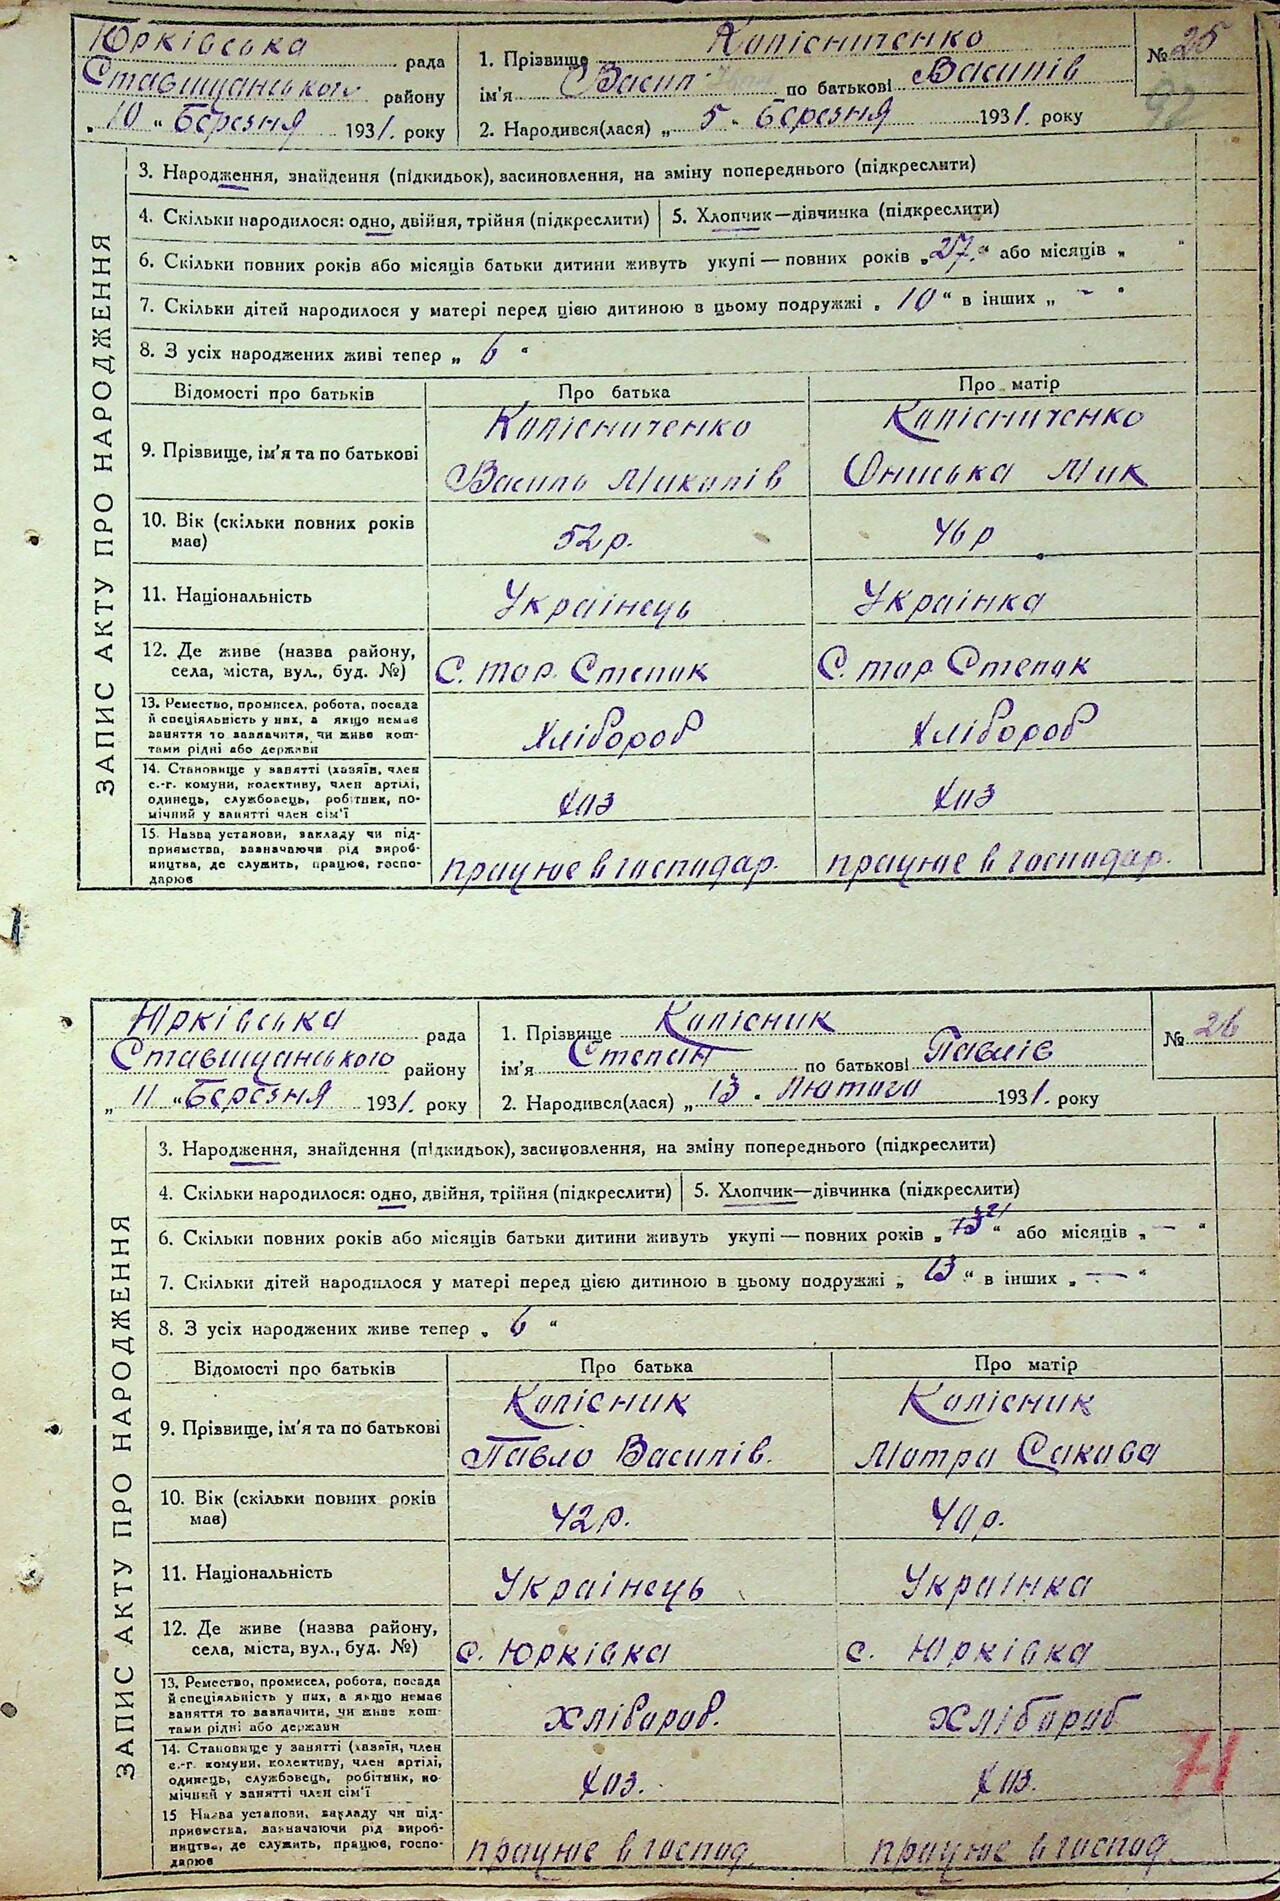 Юрківська рада
Ставищанського району
„ 10 “ Березня 1931. року
1. Прізвище Колісниченко
ім'я Васил по батькові Василів
2. Народився(лася) „ 5 “ Березня 1931. року
№ 25
92
ЗАПИС АКТУ ПРО НАРОДЖЕННЯ
3. Народження, знайдення (підкидьок), засиновлення, на зміну попереднього (підкреслити)
4. Скільки народилося: одно, двійня, трійня (підкреслити) 5. Хлопчик—дівчинка (підкреслити)
6. Скільки повних років або місяців батьки дитини живуть укупі — повних років „ 27. “ або місяців „ “
7. Скільки дітей народилося у матері перед цією дитиною в цьому подружжі „ 10 “ в інших „ – “
8. З усіх народжених живі тепер „ 6 “
Відомості про батьків Про батька Про матір
9. Прізвище, ім'я та по батькові
Колісниченко Василь Миколів
Колісниченко Ониська Мик
10. Вік (скільки повних років має) 52 р. 46 р
11. Національність Українець Українка
12. Де живе (назва району, села, міста, вул., буд. №)
С. тор. Степок С. тор. Степок
13. Ремество, промисел, робота, посада й спеціяльність у них, а якщо немає заняття то зазначити, чи живе коштами рідні або держави
Хлібороб Хлібороб
14. Становище у занятті (хазяїн, член с.-г. комуни, колективу, член артілі, одинець, службовець, робітник, помічний у занятті член сім'ї
Хаз Хаз
15. Назва установи, закладу чи підприємства, зазначаючи рід виробництва, де служить, працює, господарює
працює в господар. працює в господар.
Юрківська рада
Ставищанського району
„ 11 “ Березня 1931. року
1. Прізвище Колісник
ім'я Степан по батькові Павлів
2. Народився(лася) „ 13 “ Лютого 1931. року
№ 26
ЗАПИС АКТУ ПРО НАРОДЖЕННЯ
3. Народження, знайдення (підкидьок), засиновлення, на зміну попереднього (підкреслити)
4. Скільки народилося: одно, двійня, трійня (підкреслити) 5. Хлопчик—дівчинка (підкреслити)
6. Скільки повних років або місяців батьки дитини живуть укупі — повних років „ 21 “ або місяців „ — “
7. Скільки дітей народилося у матері перед цією дитиною в цьому подружжі „ 13 “ в інших „ — “
8. З усіх народжених живе тепер „ 6 “
Відомості про батьків Про батька Про матір
9. Прізвище, ім'я та по батькові
Колісник Павло Василів.
Колісник Мотра Сакова
10. Вік (скільки повних років має) 42 р. 40 р.
11. Національність Українець Українка
12. Де живе (назва району, села, міста, вул., буд. №)
с. Юрківка с. Юрківка
13. Ремество, промисел, робота, посада й спеціяльність у них, а якщо немає заняття то зазначити, чи живе коштами рідні або держави
Хлібороб. Хлібороб
14. Становище у занятті (хазяїн, член с.-г. комуни, колективу, член артілі, одинець, службовець, робітник, помічний у занятті член сім'ї
Хаз. Хаз.
15 Назва установи, закладу чи підприємства, зазначаючи рід виробництва, де служить, працює, господарює
працює в господ. працює в господ.
71